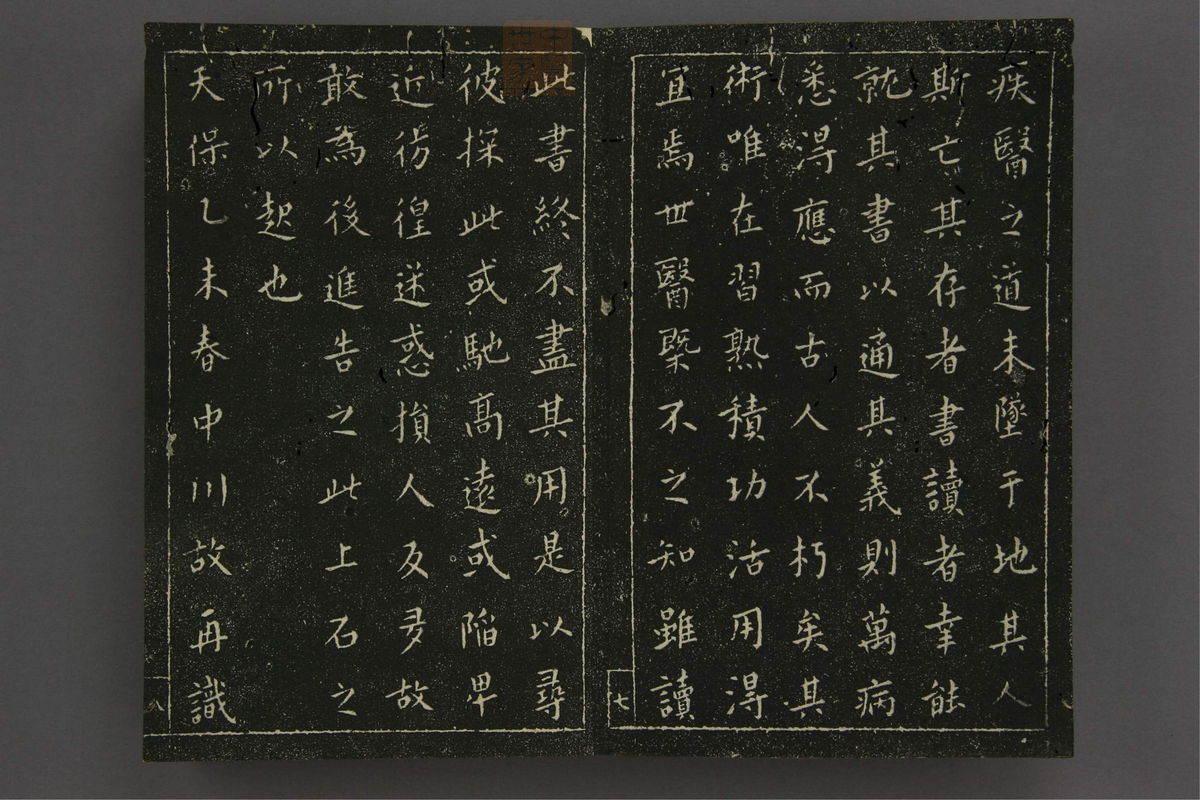 疾醫之道未墜于地其人
斯亡其存者書讀者幸能
就其書以通其義則萬病
悉得應而古人不朽矣其
術唯在習熟積功活用得
宜焉世醫槩不之知雖讀
此書終不盡其用是以尋
彼探此或馳高遠或陷卑
近彷徨迷惑損人反多故
敢為後進告之此上石之
所以起也
天保乙未春中川故再識
七
八